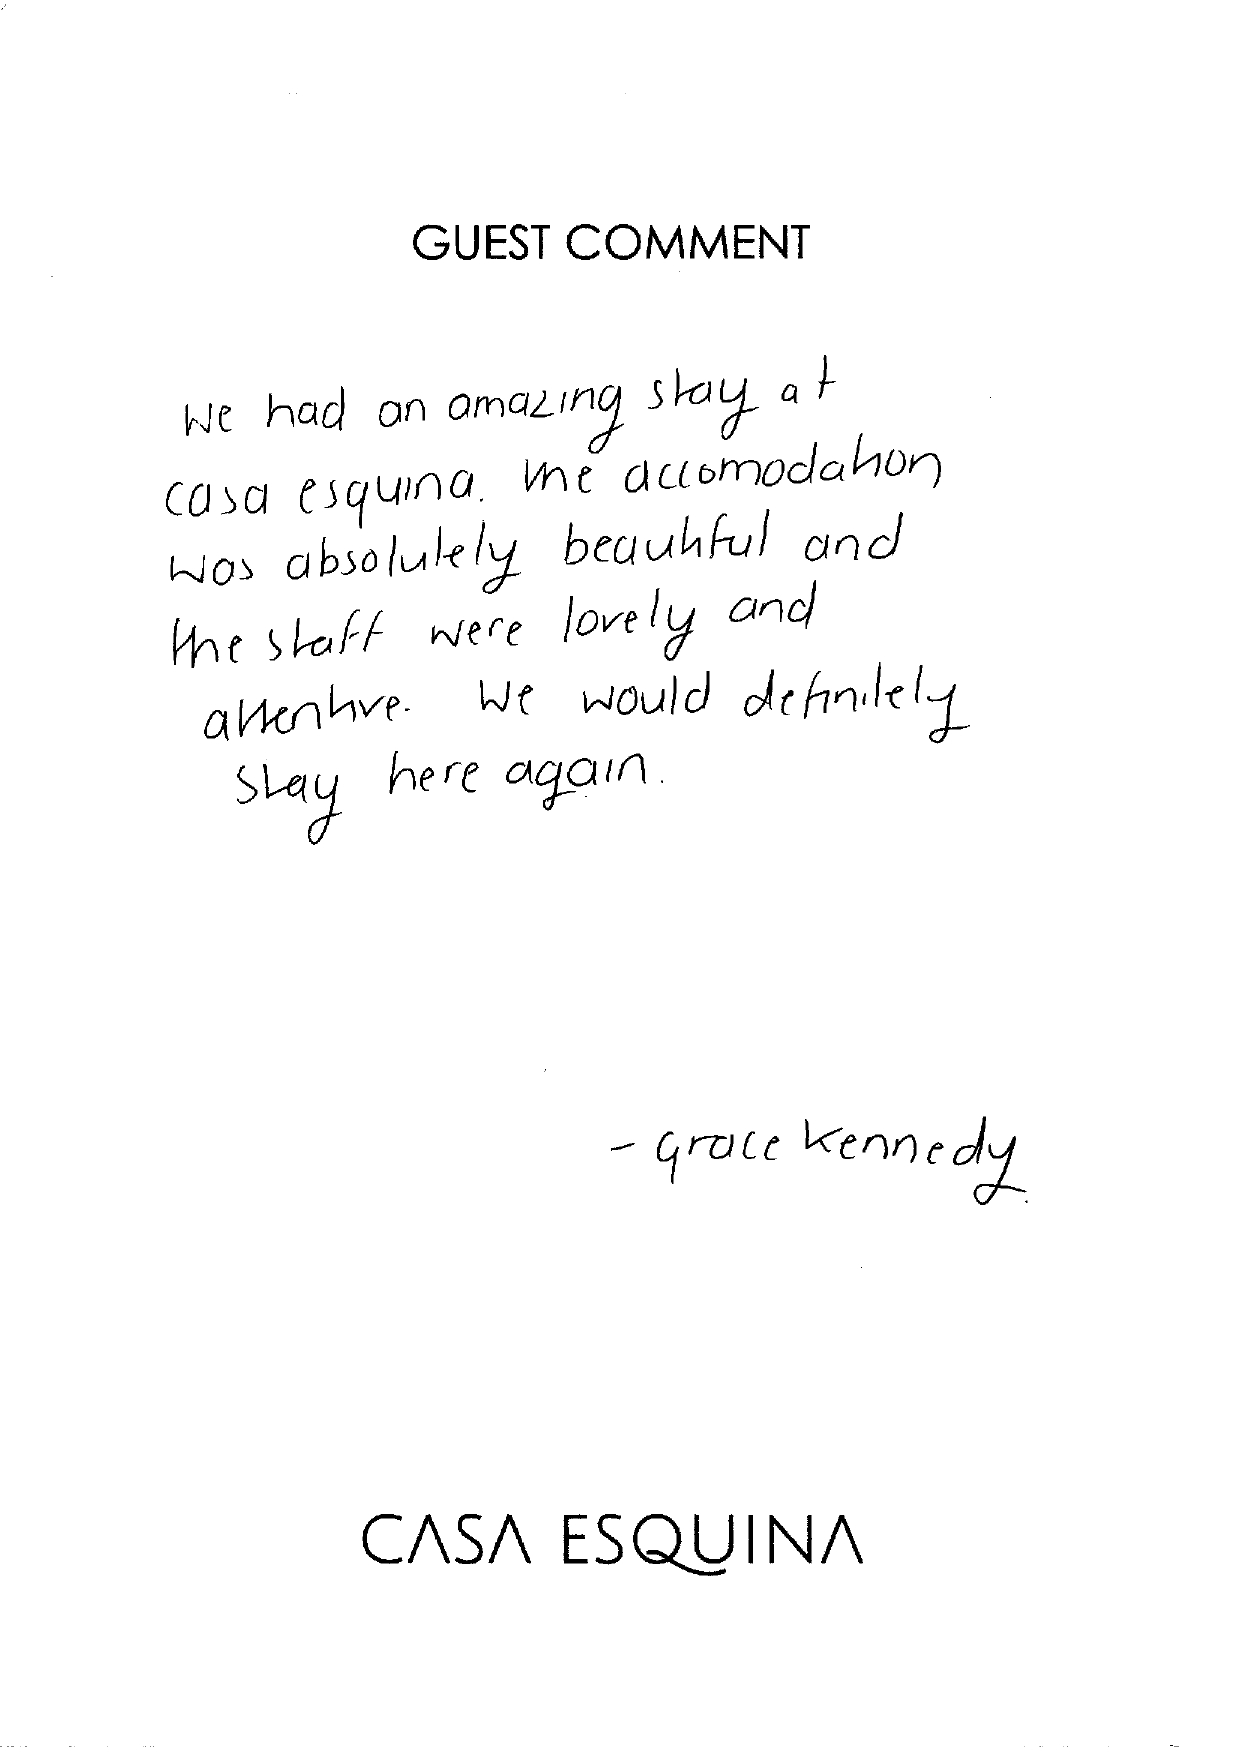 GUEST COMMENT
We had an amazing stay at
casa esquina. The accomodation
was absolutely beautiful and
the staff were lovely and
attentive. We would definitely
stay here again.
- Grace Kennedy.
CASA ESQUINA